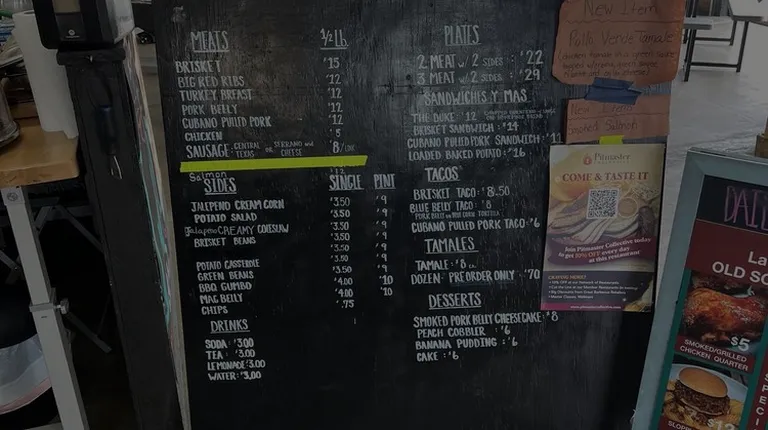 MEATS ½ Lb.
BRISKET $15
BIG RED RIBS $12
TURKEY BREAST $12
PORK BELLY $12
CUBANO PULLED PORK $12
CHICKEN
SAUSAGE: CENTRAL TEXAS OR SERRANO and CHEESE $8
Salmon
SIDES SINGLE PINT
JALEPENO CREAM CORN $3.50 $9
POTATO SALAD $3.50 $9
Jalapeno CREAMY COLESLAW $3.50 $9
BRISKET BEANS $3.50 $9
POTATO CASSEROLE $3.50 $9
GREEN BEANS $3.50 $9
BBQ GUMBO $4.00 $10
MAC BELLY $4.00 $10
CHIPS .75
DRINKS
SODA: $3.00
TEA: $3.00
LEMONADE: $3.00
WATER: $3.00
PLATES
2 MEAT w/ 2 SIDES: $22
3 MEAT w/ 2 SIDES: $29
SANDWICHES Y MAS
THE DUKE $12
BRISKET SANDWICH: $14
CUBANO PULLED PORK SANDWICH:
LOADED BAKED POTATO: $16
TACOS
BRISKET TACO: $8.50
BLUE BELLY TACO: $8
PORK BELLY ON BLUE CORN TORTILLA
CUBANO PULLED PORK TACO: $6
TAMALES
TAMALE: $8
DOZEN: PREORDER ONLY: $70
DESSERTS
SMOKED PORK BELLY CHEESECAKE: $8
PEACH COBBLER: $6
BANANA PUDDING: $6
CAKE: $6
New Item
Pollo Verde Tamale
New Item
Smoked Salmon
Pitmaster
COME & TASTE IT
Join Pitmaster Collective today
to get 10% OFF every day
at this restaurant
OLD SC
$5
SMOKED/GRILLED
CHICKEN QUARTER